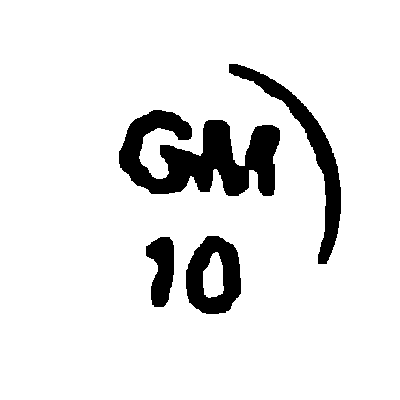 GM
10